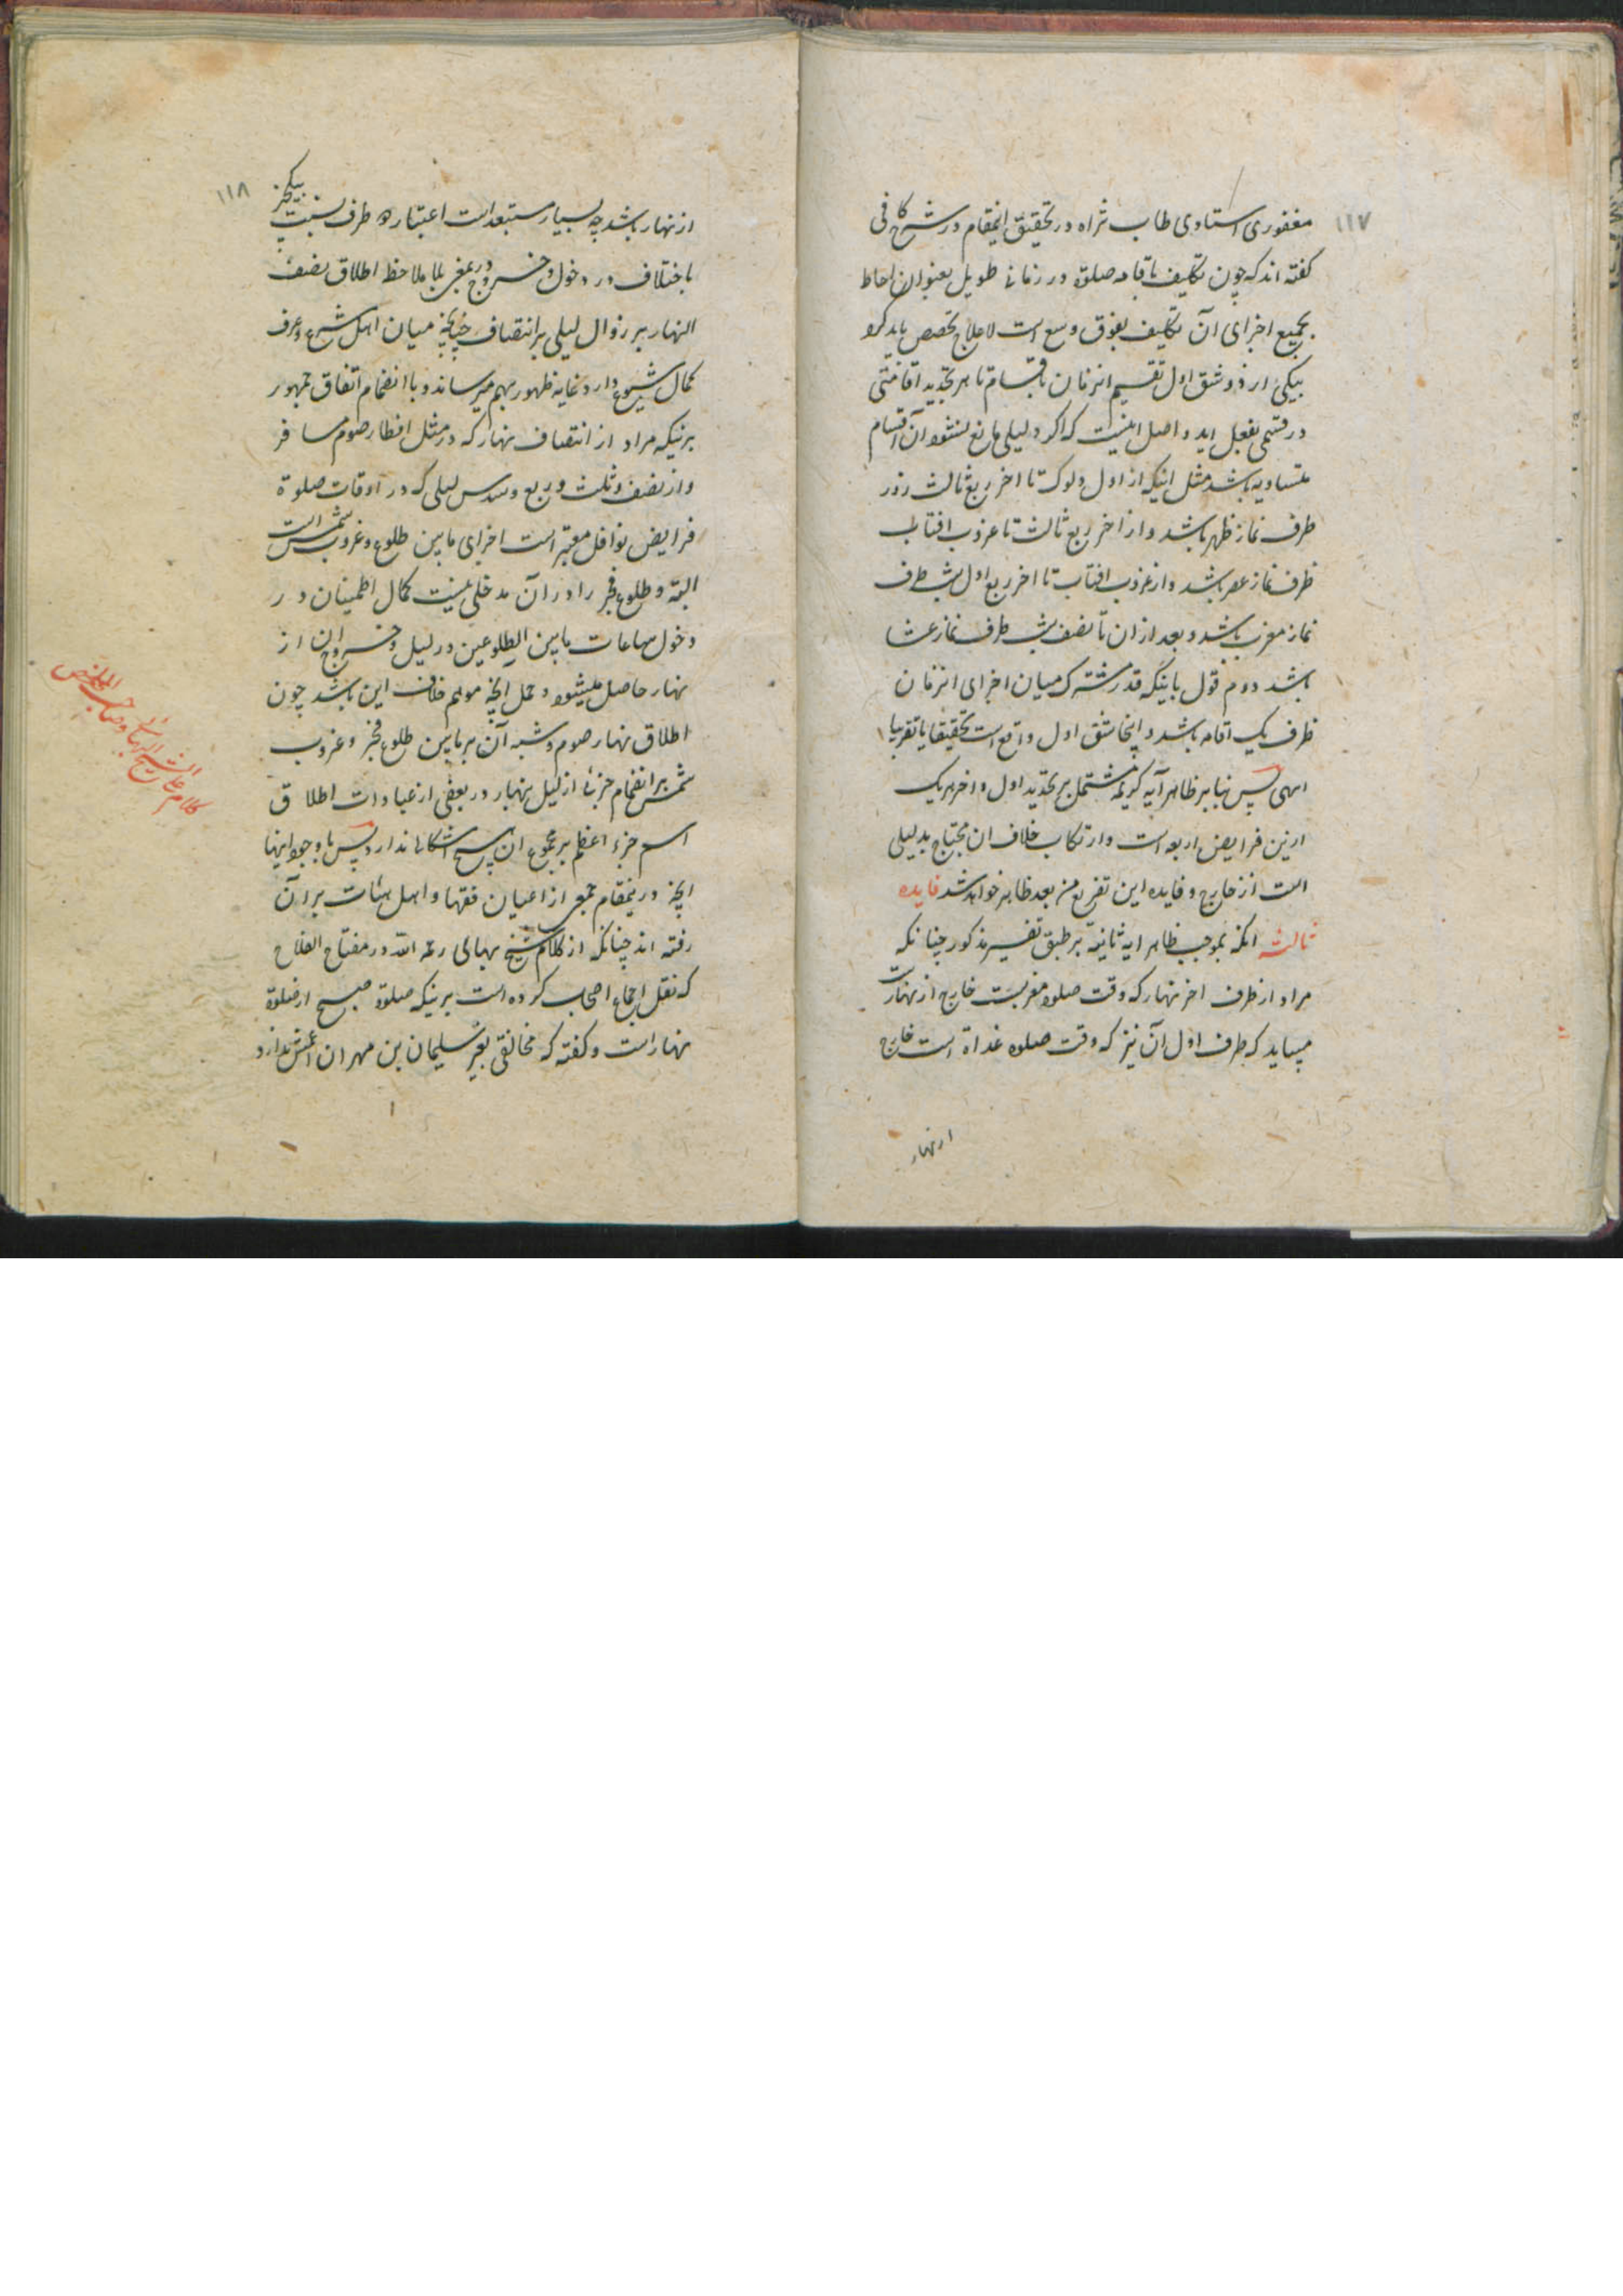 ۱۱۷
مغفوری استادی طاب ثراه در تحقیق اینمقام در شرح کافی
گفته اند که چون تکلیف باقامه صلوة در زمانی طویل بعنوان احاطه
بجمیع اجزای آن تکلیف بفوق وسع است لاعلاج تخصیص باید کرد
بیکی از دو شق اول تقسیم انزمان باقسام تا هر تجدید اقامتی
در قسمی بفعل اید و اصل اینست که اگر دلیلی مانع نشود آن اقسام
متساویه باشد مثل اینکه از اول دلوک تا اخر ربع ثالث روز
ظرف نماز ظهر باشد و از اخر ربع ثالث تا غروب افتاب
ظرف نماز عصر باشد و از غروب افتاب تا اخر ربع اول شب ظرف
نماز مغرب باشد و بعد از ان تا نصف شب ظرف نماز عشا
باشد دوم قول باینکه قدر مشترک میان اجزای انزمان
ظرف یک اقامه باشد و اینجا شق اول واقع است تحقیقا یا تقریبا
انتهی پس بنابر ظاهر آیه کریمه مشتمل بر تحدید اول و اخر هر یک
ازین فرایض اربعه است و ارتکاب خلاف ان محتاج بدلیلی
است از خارج و فایده این تفریع من بعد ظاهر خواهد شد فایده
ثالثه انکه بموجب ظاهر ایه ثانیه بر طبق تفسیر مذکور چنانکه
مراد از طرف اخر نهار که وقت صلوة مغربست خارج از نهارست
میباید که طرف اول آن نیز که وقت صلوة غداة است خارج
از نهار
۱۱۸
از نهار باشد چه بسیار مستبعد است اعتبار دو طرف نسبت بیکچیز
باختلاف در دخول و خروج در مغیی با ملاحظه اطلاق نصف
النهار بر زوال لیلی بر انتصاف چنانچه میان اهل شرع و عرف
کمال شیوع دارد غایه ظهور بهم میرساند و با انضمام اتفاق جمهور
برینکه مراد از انتصاف نهار که در مثل افطار صوم مسافر
و از نصف و ثلث و ربع و سدس لیلی که در اوقات صلوة
فرایض نوافل معتبر است اجزای مابین طلوع و غروب شمس است
البته و طلوع فجر را در آن مدخلی نیست کمال اطمینان در
دخول ساعات مابین الطلوعین در لیل و خروج ان از
نهار حاصل میشود و حمل انچه موهم خلاف این باشد چون
اطلاق نهار صوم و شبه آن بر مابین طلوع فجر و غروب
شمس بر انضمام جزئی از لیل بنهار در بعضی از عبادات اطلاق
اسم جزء اعظم بر مجموع ان هیچ اشکالی ندارد پس با وجود اینها
انچه درینمقام جمعی از اعیان فقها و اهل هیئات بر آن
رفته اند چنانکه از کلام شیخ بهائی رحمه الله در مفتاح الفلاح
که نقل اجماع اصحاب کرده است برینکه صلوة صبح از صلوة
نهار است و گفته که مخالفی بغیر سلیمان بن مهران اعمش ندارد
کلام علی الشیخ البهائی وصاحب الملخص